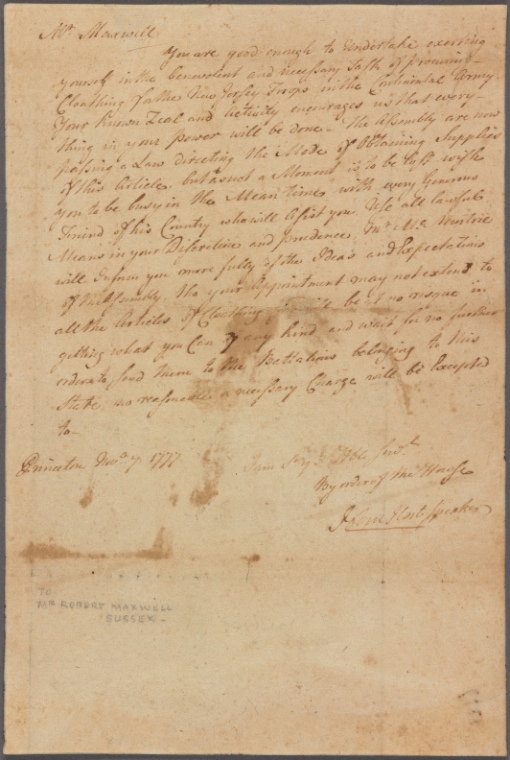 Mr Maxwell
You are good enough to Undertake exerting
yourself in the benevolent and necessary Task of procuring
Cloathing for the New Jersey Troops in the Continental Army
Your known Zeal and Activity encourages us that every-
thing in your power will be done - The Assembly are now
passing a Law directing the Mode of Obtaining Supplies
of this Article, but as not a Moment is to be lost wish
you to be busy in the Mean time, with every Generous
Friend of his Country who will Assist you. Use all lawful
Means in your Discretion and prudence,
will Inform you more fully of the Ideas and Expectations
of the Assembly, tho your Appointment may not extend to
all the Articles of Cloathing will be at no risque in
getting what you can of any kind and wait for no further
orders to send them to the Battalions belonging to this
State, no reasonable & necessary Charge will be Excepted
to -
Princeton Novr 7 1777
I am Sir yr Hble Servt
By order of the House
Speaker
TO
MR ROBERT MAXWELL
SUSSEX -